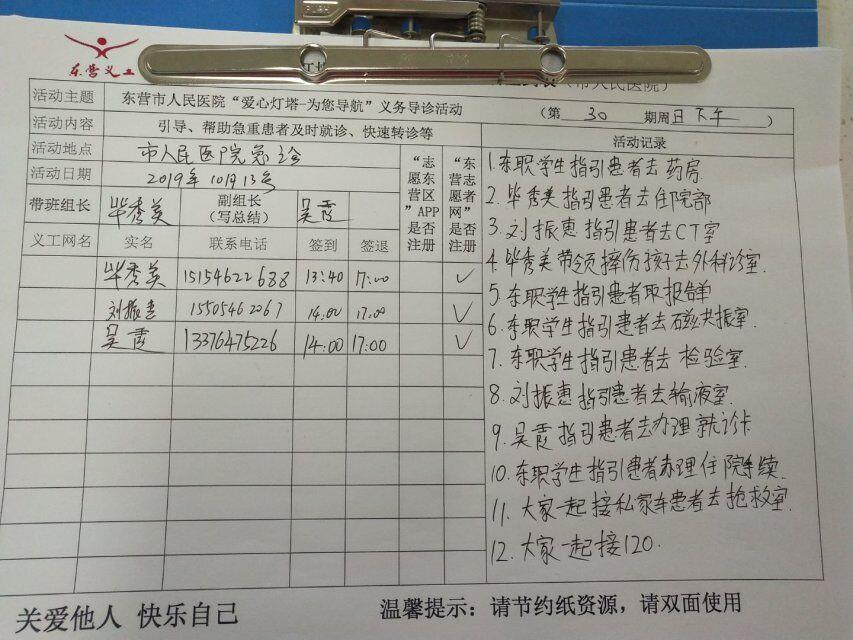 东营义工
（市人民医院）
活动主题 东营市人民医院“爱心灯塔-为您导航”义务导诊活动 （第 30 期周日下午 ）
活动内容 引导、帮助急重患者及时就诊、快速转诊等
活动地点 市人民医院急诊
活动日期 2019年10月13号
带班组长 毕秀美 副组长（写总结） 吴霞
“志愿东营区”APP是否注册
“东营志愿者网”是否注册
义工网名 实名 联系电话 签到 签退
毕秀美 15154622688 13:40 17:00 ✓
刘振惠 15505462267 14:00 17:00 ✓
吴霞 13376475226 14:00 17:00 ✓
活动记录
1. 东职学生指引患者去药房.
2. 毕秀美指引患者去住院部
3. 刘振惠指引患者去CT室
4. 毕秀美带领摔伤孩子去外科诊室.
5. 东职学生指引患者取报告单
6. 东职学生指引患者去磁共振室.
7. 东职学生指引患者去检验室.
8. 刘振惠指引患者去输液室.
9. 吴霞指引患者去办理就诊卡
10. 东职学生指引患者办理住院手续.
11. 大家一起接私家车患者去抢救室.
12. 大家一起接120.
关爱他人 快乐自己
温馨提示：请节约纸资源，请双面使用